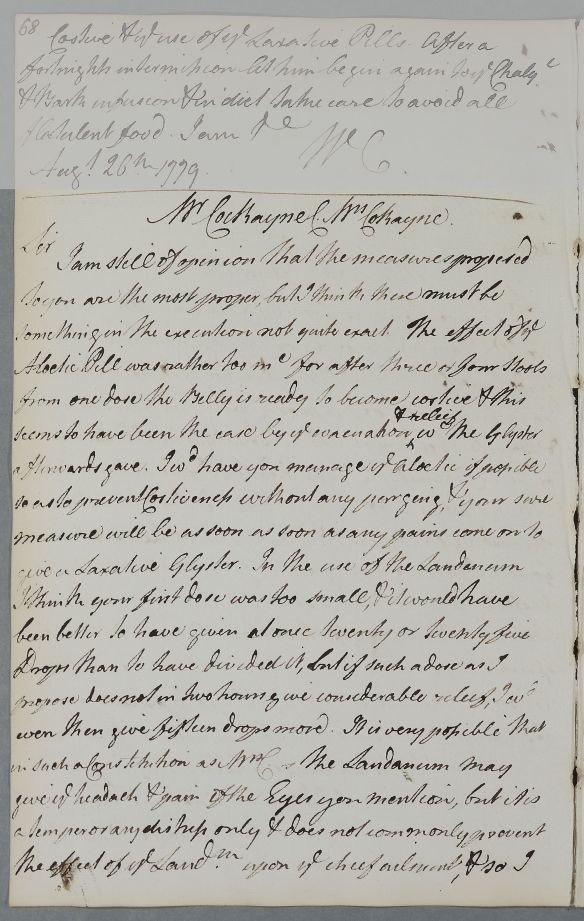 68
Costive & ye use of ye Laxative Pills. After a
fortnights intermission let him begin again wt ye Chalyt
& Bark infusion & in diet take care to avoid all
flatulent food. I am &c
WC
Augt 26th 1779.
Mr Cockayne C. Mrs Cokayne.
Sir
I am still of opinion that the measures proposed
to you are the most proper, but I think there must be
something in the execution not quite exact. The effect of ye
Aloetic Pill was rather too mc for after three or four stools
from one dose the Belly is ready to become costive & this
seems to have been the case by ye evacuation, & relief wc the Glyster
afterwards gave. I wd have you manage ye Aloetic if possible
so as to prevent Costiveness without any purging, & your sure
measure will be as soon as soon as any pains come on to
give a Laxative Glyster. In the use of the Laudanum
I think your first dose was too small, & it would have
been better to have given at once twenty or twenty five
Drops than to have divided it, but if such a dose as I
propose does not in two hours give considerable relief, I wd
even then give fifteen drops more. It is very possible that
in such a Constitution as Mrs C_s the Laudanum may
give ye headach & pain of the Eyes you mention, but it is
a temperorary diship only & does not commonly prevent
the effect of ye Laudm upon ye chief ailment, & so I